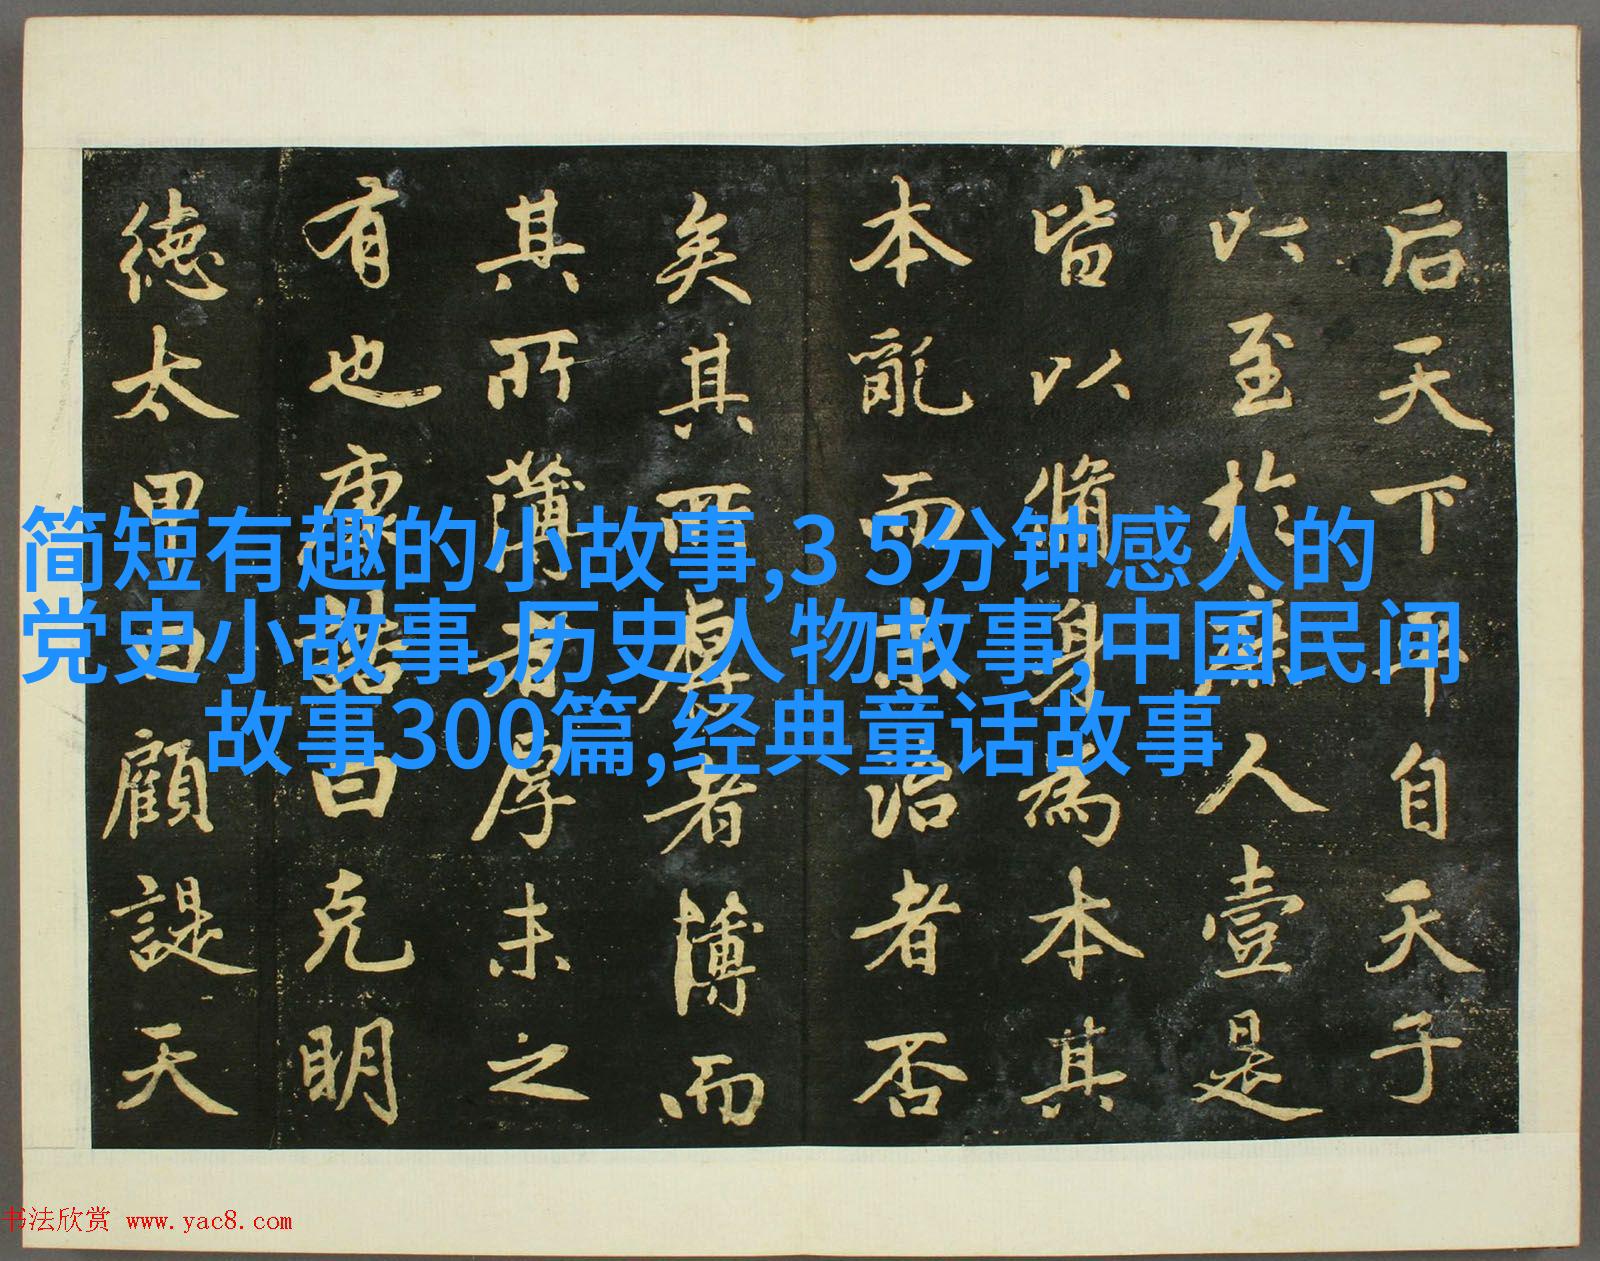 后天下平自天子
以至於庶人壹是
皆以脩身為本其
本亂而末治者否
矣其所厚者薄而
其所薄者厚未之
有也康誥曰克明
德太甲曰顧諟天
简短有趣的小故事,3 5分钟感人的
党史小故事,历史人物故事,中国民间
故事300篇,经典童话故事
书法欣赏 www.yac8.com